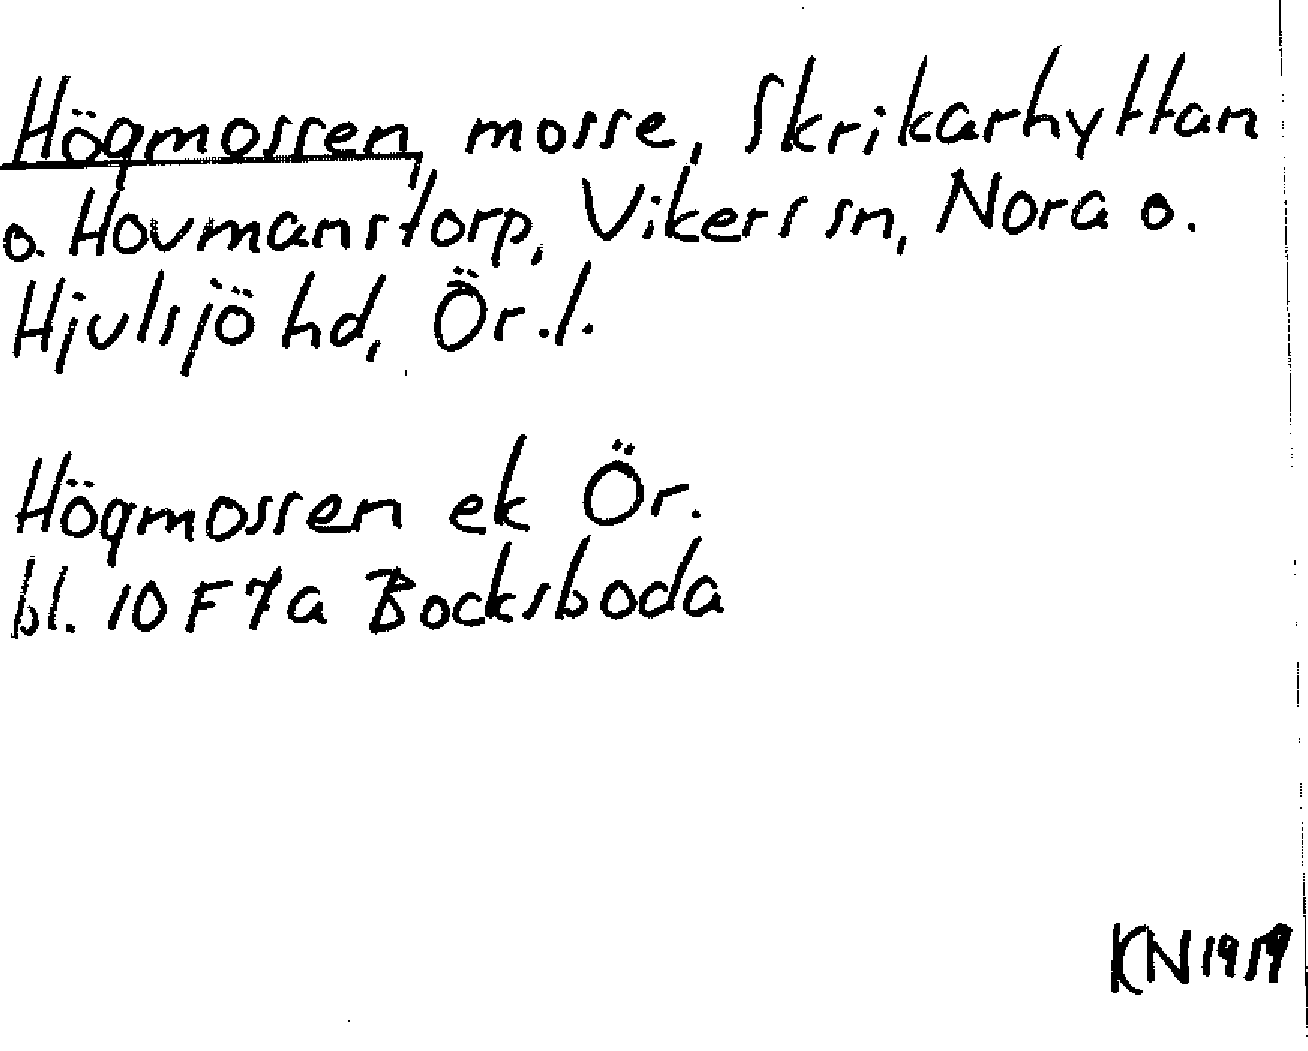 Högmossen, mosse, Skrikarhyttan
o. Hovmanstorp, Vikers sn, Nora o.
Hjulsjö hd, Ör.l.
Högmossen ek Ör.
bl. 10 F 7a Bocksboda
KN 1959